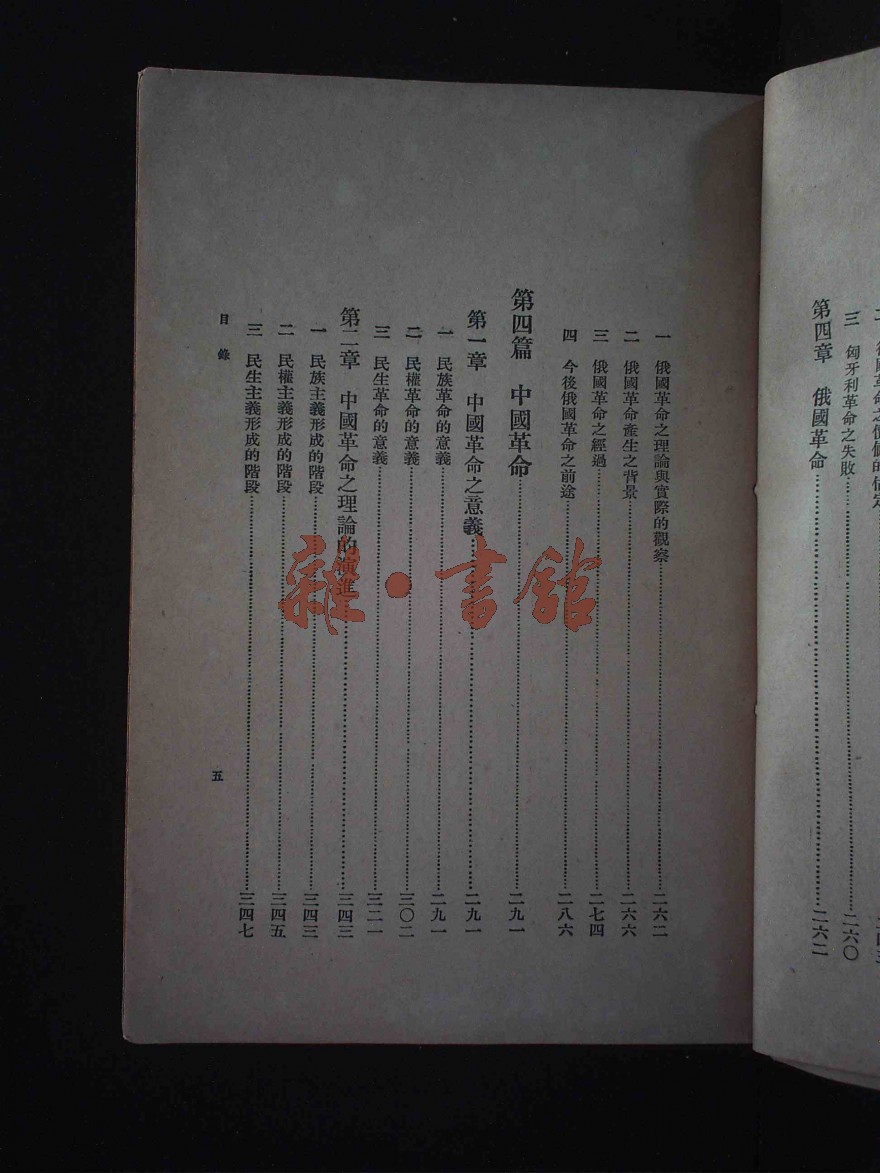 三　匈牙利革命之失敗……二六〇
第四章　俄國革命……二六二
一　俄國革命之理論與實際的觀察……二六二
二　俄國革命產生之背景……二六六
三　俄國革命之經過……二七四
四　今後俄國革命之前途……二八六
第四篇　中國革命……二九一
第一章　中國革命之意義……二九一
一　民族革命的意義……二九一
二　民權革命的意義……三〇二
三　民生革命的意義……三二一
第二章　中國革命之理論的演進……三四三
一　民族主義形成的階段……三四三
二　民權主義形成的階段……三四五
三　民生主義形成的階段……三四七
目錄
五
雜·書館